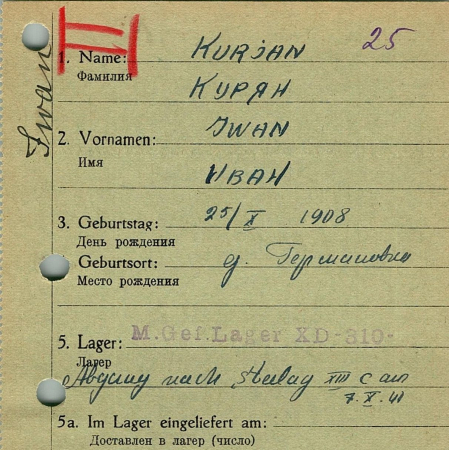 25
1. Name: KURJAN
Фамилия
КУРЯН
2. Vornamen: IWAN
Имя
ИВАН
Iwan
3. Geburtstag: 25/X 1908
День рождения
Geburtsort: д. Германовка
Место рождения
M.Gef.Lager XD-310-
5. Lager:
Лагерь
Abgang nach Stalag XIII C am
7.X.41
5a. Im Lager eingeliefert am:
Доставлен в лагерь (число)